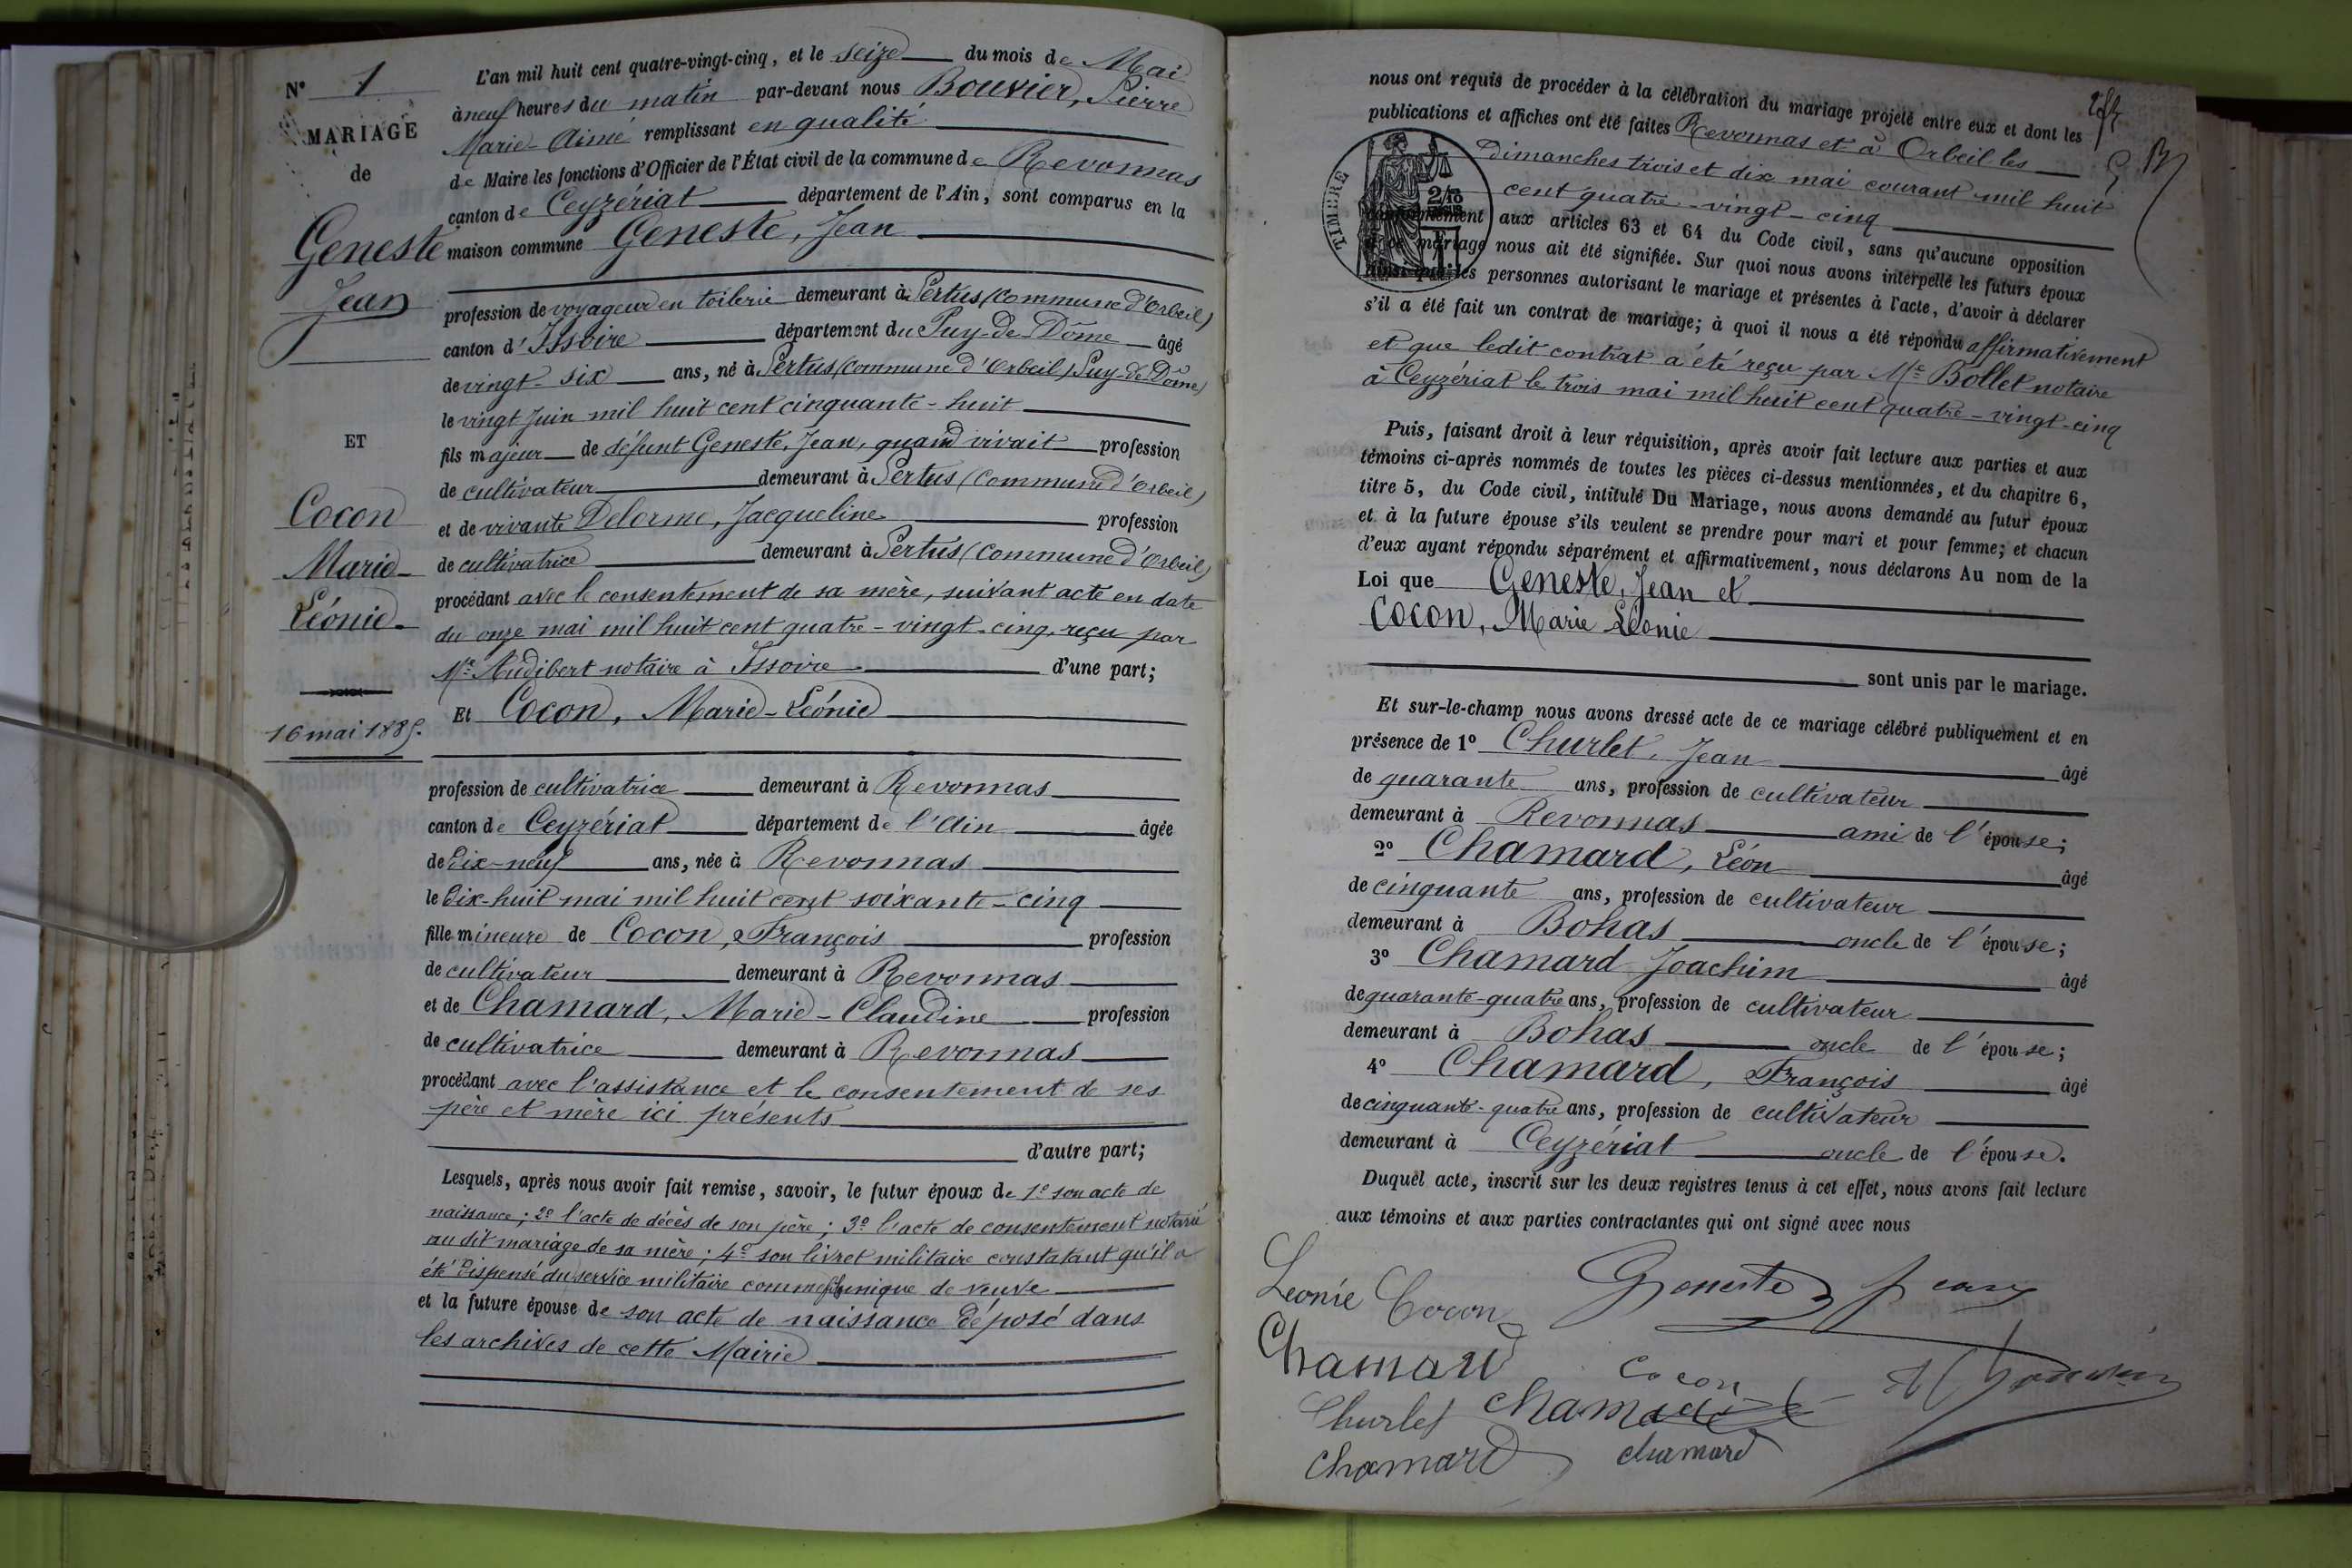 N° 1
MARIAGE
de
Geneste
Jean
ET
Cocon
Marie-
Léonie.
16 mai 1885.
L'an mil huit cent quatre-vingt-cinq, et le seize du mois de Mai
à neuf heures du matin par-devant nous Bouvier, Pierre
Marie-Aimé remplissant en qualité
de Maire les fonctions d'Officier de l'État civil de la commune de Revonnas
canton de Ceyzériat département de l'Ain, sont comparus en la
maison commune Geneste, Jean
profession de voyageur en toilerie demeurant à Pertus (Commune d'Orbeil)
canton d'Issoire département du Puy-de-Dôme âgé
de vingt-six ans, né à Pertus (Commune d'Orbeil) Puy-de-Dôme)
le vingt Juin mil huit cent cinquante-huit
fils majeur de défunt Geneste, Jean, quand vivait profession
de cultivateur demeurant à Pertus (Commune d'Orbeil)
et de vivante Delorme, Jacqueline profession
de cultivatrice demeurant à Pertus (Commune d'Orbeil)
procédant avec le consentement de sa mère, suivant acte en date
du onze mai mil huit cent quatre-vingt-cinq, reçu par
Me Audibert notaire à Issoire d'une part;
Et Cocon, Marie-Léonie
profession de cultivatrice demeurant à Revonnas
canton de Ceyzériat département de l'Ain âgée
de Dix-neuf ans, née à Revonnas
le Dix-huit mai mil huit cent soixante-cinq
fille mineure de Cocon, François profession
de cultivateur demeurant à Revonnas
et de Chamard, Marie-Claudine profession
de cultivatrice demeurant à Revonnas
procédant avec l'assistance et le consentement de ses
père et mère ici présents
d'autre part;
Lesquels, après nous avoir fait remise, savoir, le futur époux de 1° son acte de
naissance; 2° l'acte de décès de son père; 3° l'acte de consentement notarié
au dit mariage de sa mère; 4° son livret militaire constatant qu'il a
été dispensé du service militaire comme fils unique de veuve
et la future épouse de son acte de naissance déposé dans
les archives de cette Mairie
nous ont requis de procéder à la célébration du mariage projeté entre eux et dont les
publications et affiches ont été faites Revonnas et à Orbeil les
dimanches trois et dix mai courant mil huit
cent quatre-vingt-cinq
TIMBRE
conformément aux articles 63 et 64 du Code civil, sans qu'aucune opposition
à ce mariage nous ait été signifiée. Sur quoi nous avons interpellé les futurs époux
ainsi que les personnes autorisant le mariage et présentes à l'acte, d'avoir à déclarer
s'il a été fait un contrat de mariage; à quoi il nous a été répondu affirmativement
et que ledit contrat a été reçu par Me Bollet notaire
à Ceyzériat le trois mai mil huit cent quatre-vingt-cinq
Puis, faisant droit à leur réquisition, après avoir fait lecture aux parties et aux
témoins ci-après nommés de toutes les pièces ci-dessus mentionnées, et du chapitre 6,
titre 5, du Code civil, intitulé Du Mariage, nous avons demandé au futur époux
et à la future épouse s'ils veulent se prendre pour mari et pour femme; et chacun
d'eux ayant répondu séparément et affirmativement, nous déclarons Au nom de la
Loi que Geneste, Jean et
Cocon, Marie Léonie
sont unis par le mariage.
Et sur-le-champ nous avons dressé acte de ce mariage célébré publiquement et en
présence de 1° Churlet, Jean âgé
de quarante ans, profession de cultivateur
demeurant à Revonnas ami de l'épouse;
2° Chamard, Léon âgé
de cinquante ans, profession de cultivateur
demeurant à Bohas oncle de l'épouse;
3° Chamard Joachim âgé
de quarante-quatre ans, profession de cultivateur
demeurant à Bohas oncle de l'épouse;
4° Chamard, François âgé
de cinquante-quatre ans, profession de cultivateur
demeurant à Ceyzériat oncle de l'épouse.
Duquel acte, inscrit sur les deux registres tenus à cet effet, nous avons fait lecture
aux témoins et aux parties contractantes qui ont signé avec nous
Leonie Cocon Geneste Jean
Chamard Cocon
Churlet Chamard
Chamard chamard